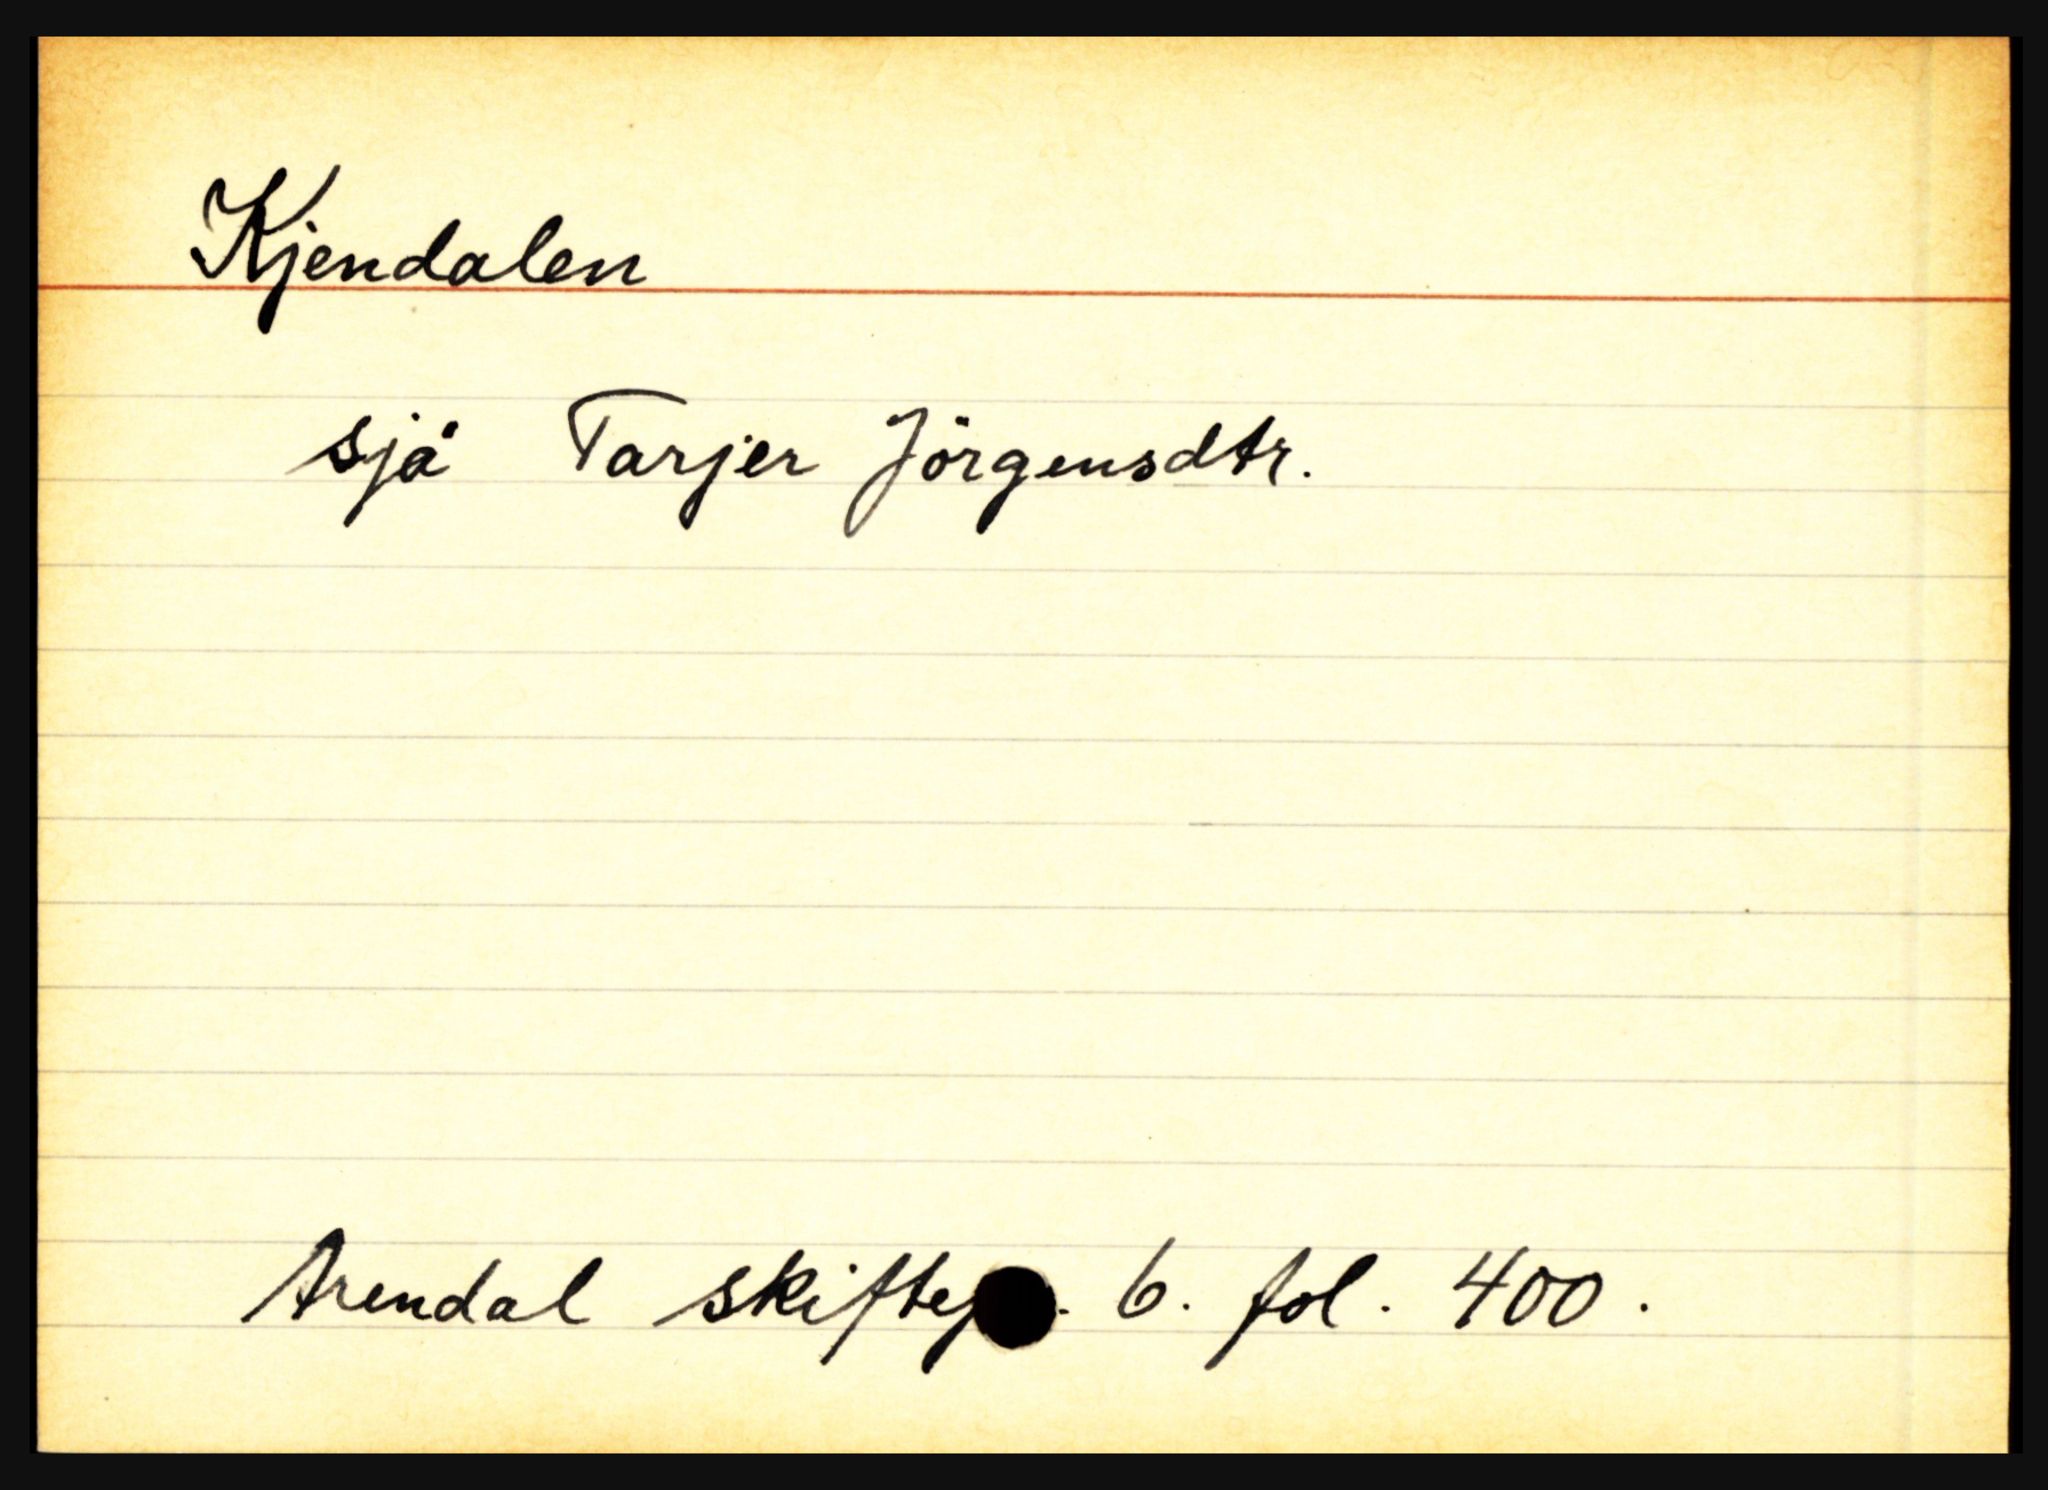 Kjendalen
sjå Tarjer Jörgensdtr.
Arendal 6. fol. 400.